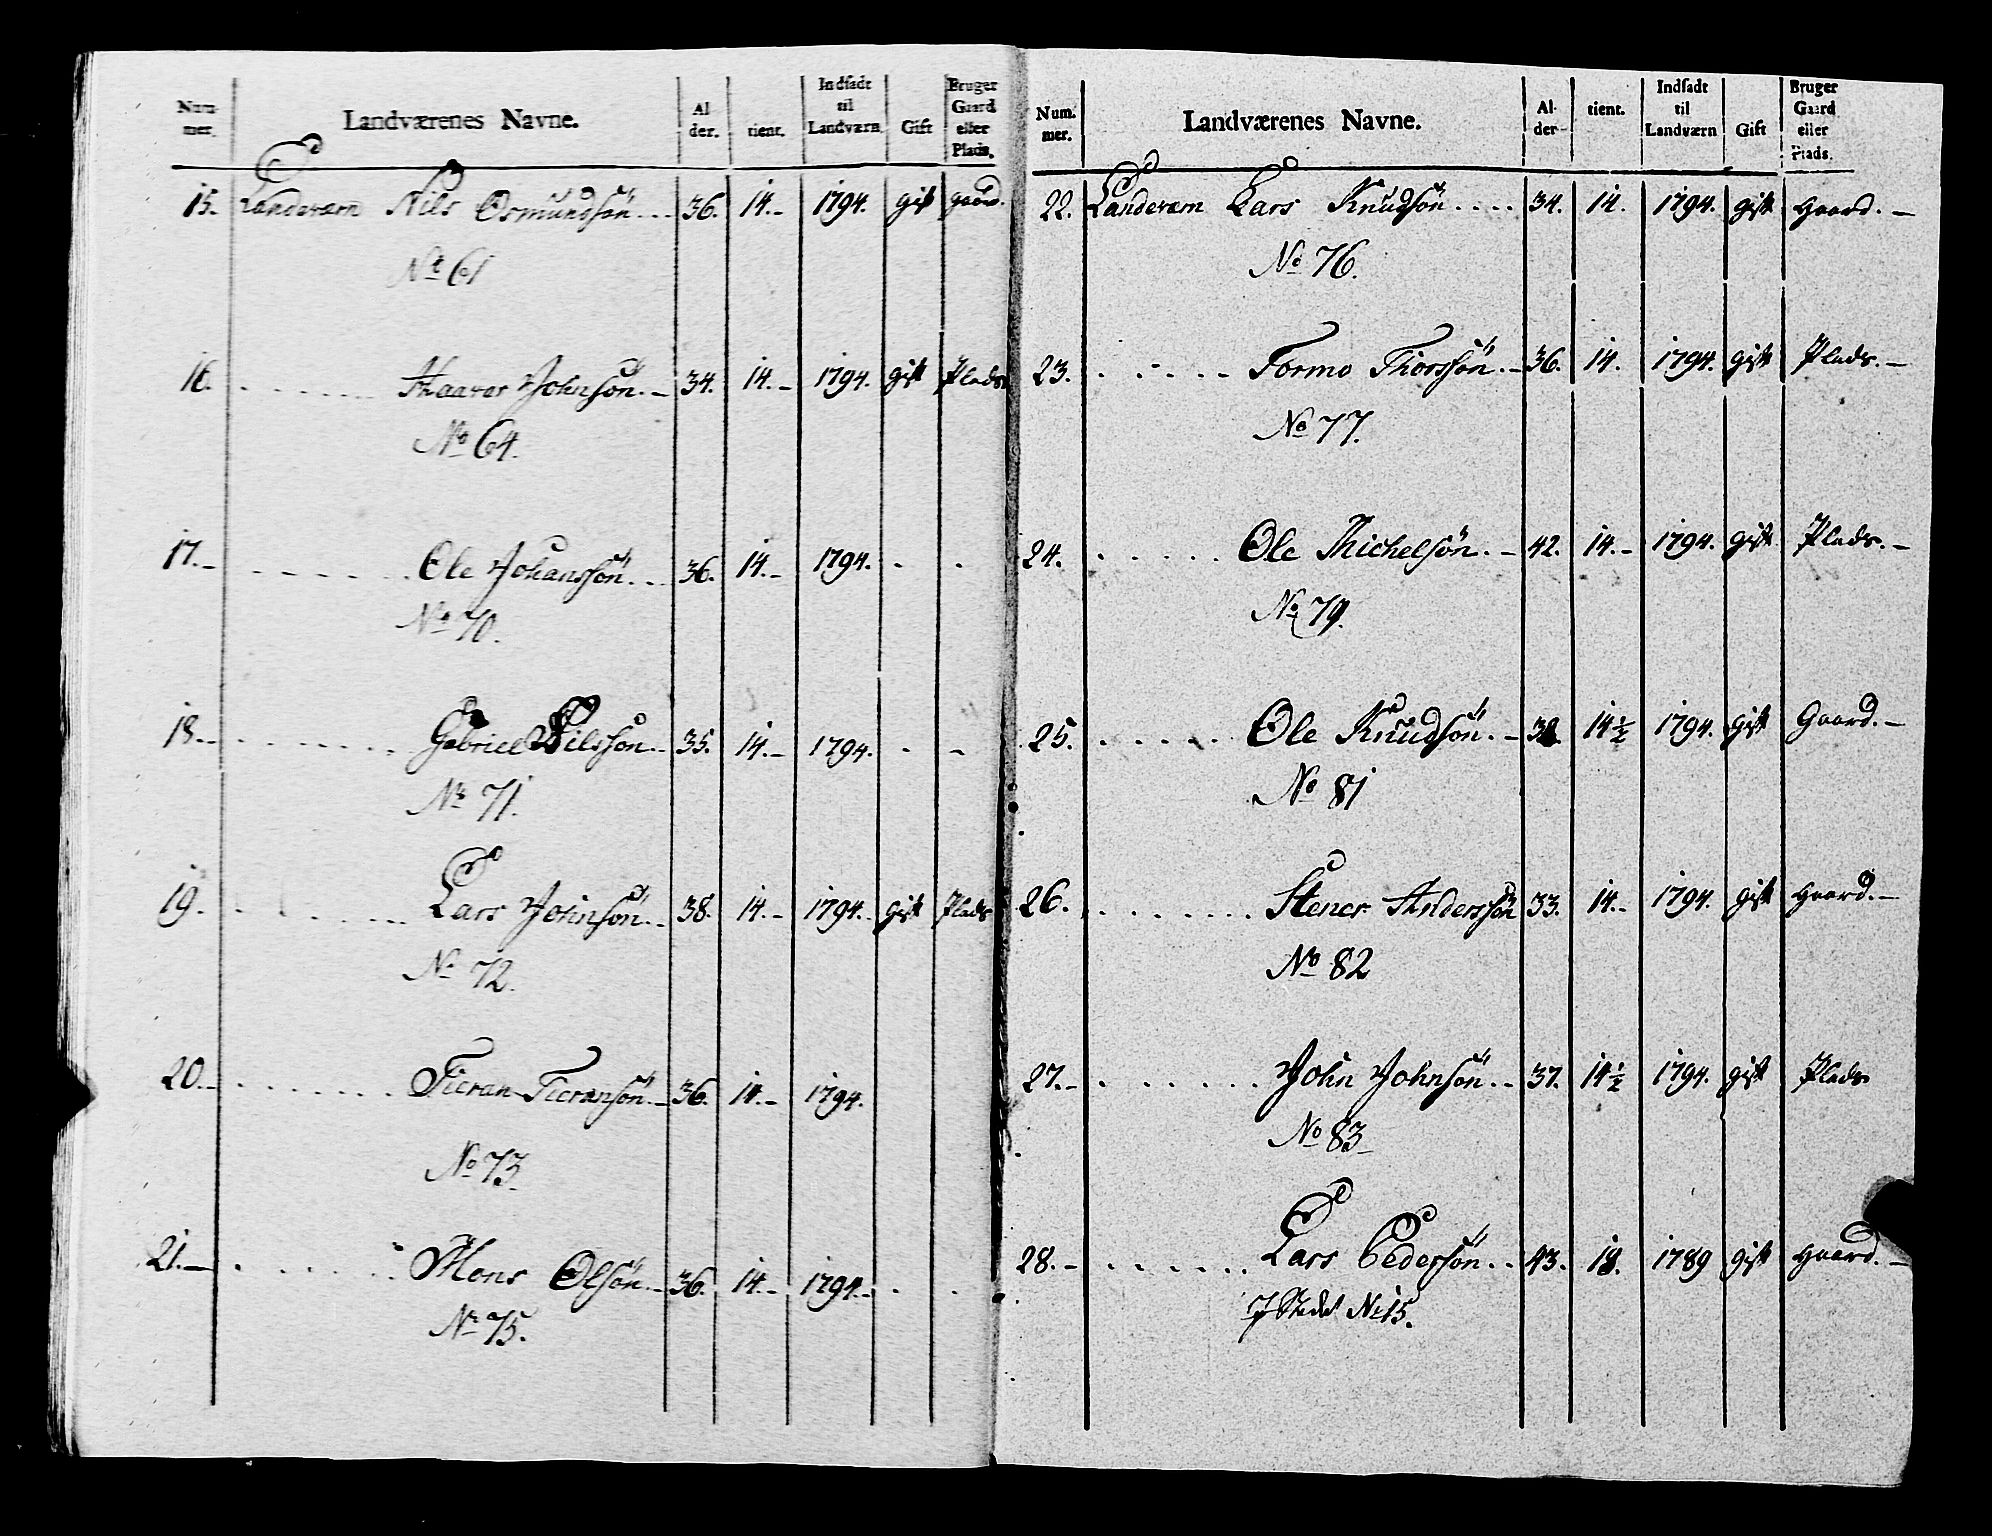 Num-mer. Landværenes Navne. Al der. tient. Indsadt til Landværn Gift Bruger Gaard eller Plads.
15. Landværn Nils Osmundsön 36. 14. 1794. gift gaard.
No 61
16. Haaver Johnsön 34. 14. 1794. gift Plads
No 64.
17. Ole Johanssön 36. 14. 1794. - -
No 70.
18. Gabriel Nilssön 35. 14. 1794. - -
No 71.
19. Lars Johnsön 38. 14. 1794. gift Plads
No 72.
20. Tieran Tieransön 36. 14. 1794.
No 73
21. Mons Olsön 36. 14. 1794. - -
No 75.
Num. mer. Landværenes Navne. Al-der tient. Indsadt til Landværn Gift Bruger Gaard eller Plads.
22. Landværn Lars Knudsön 34. 14. 1794. gift Gaard.
No 76.
23. Tormo Thorssön 36. 14. 1794. gift Plads.
No 77.
24. Ole Michelsön 42. 14. 1794. gift Plads.
No 79.
25. Ole Knudsön 14½ 1794. gift Gaard.
No 81
26. Stener Anderssön 33. 14. 1794. gift Gaard.
No 82
27. John Johnsön 37. 14½ 1794. gift Plads
No 83
28. Lars Pedersön 43. 18. 1789 gift Gaard.
I Stedet No 15.